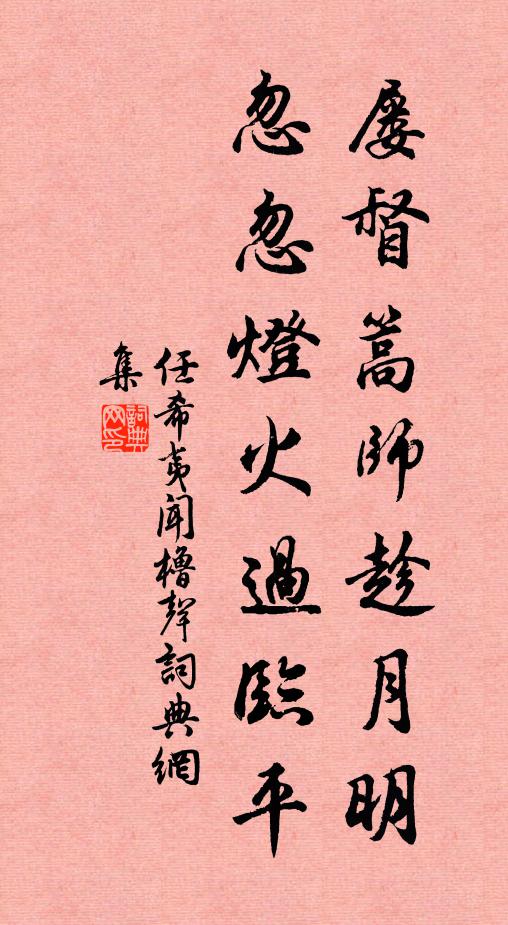 屡督篙師趁月明
忽忽燈火過臨平
任希夷聞櫓聲詞典網
集
詞典
网印